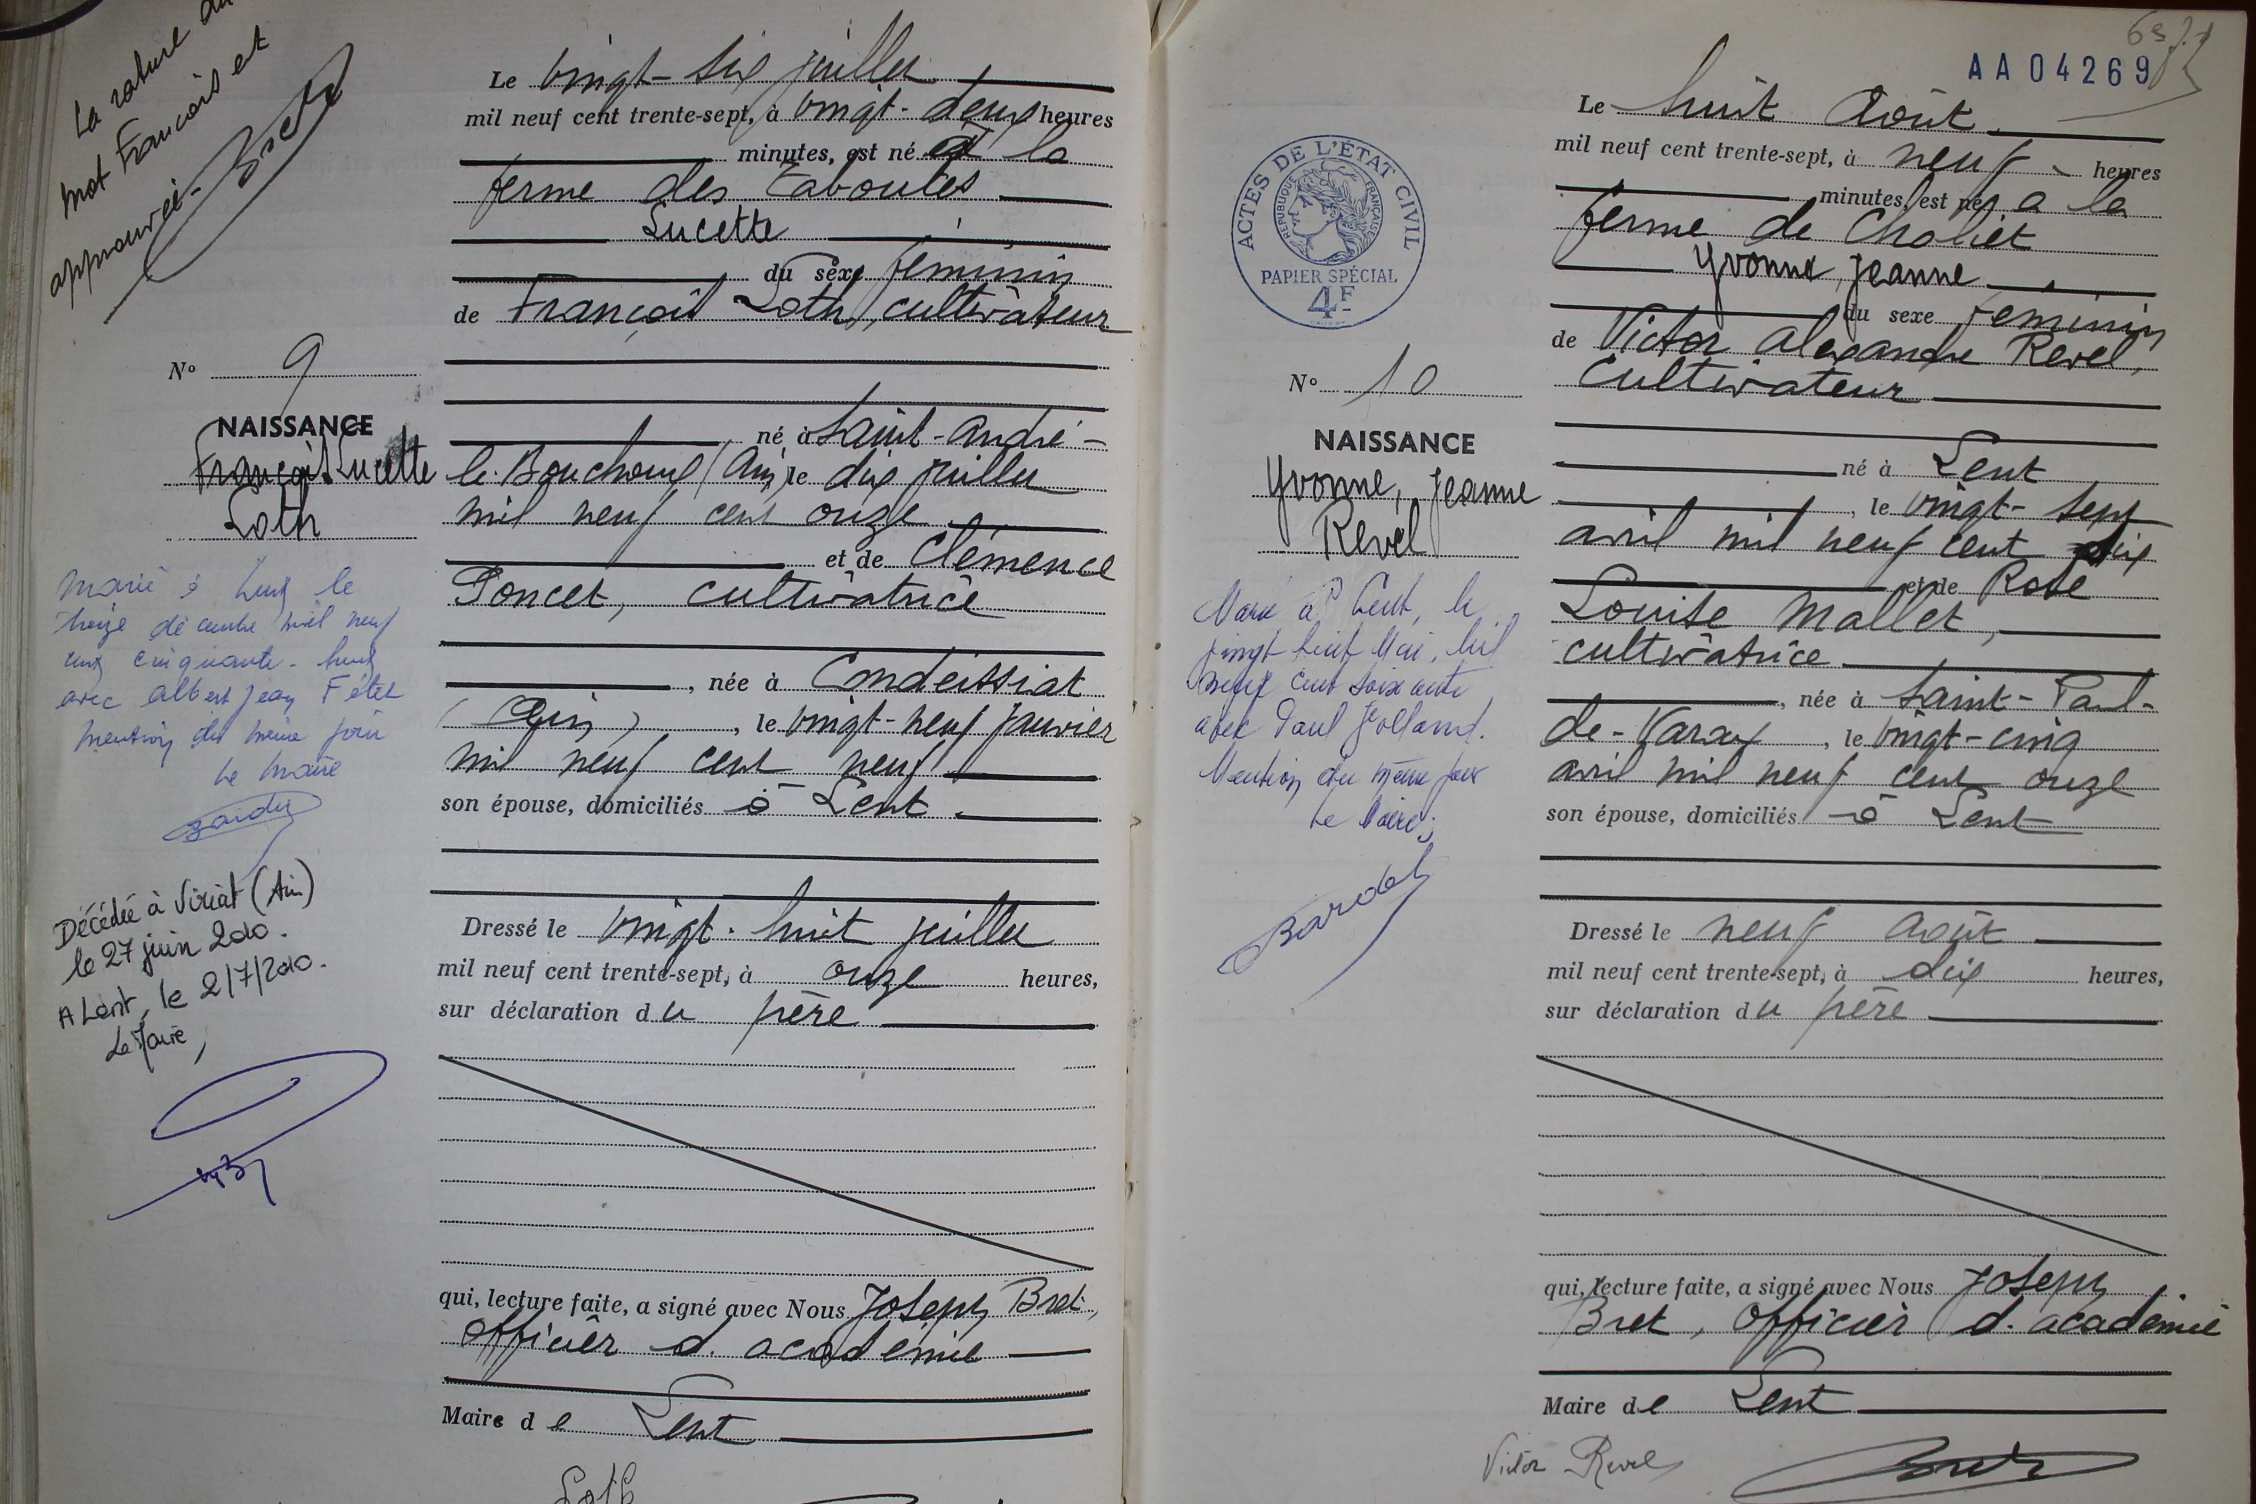 La rature du
mot François est
approuvée.
Bret
N° 9
NAISSANCE
François Lucette
Loth
Marié à Lent le
treize décembre mil neuf
cent cinquante-huit
avec Albert Jean Fétet
mention du même jour
Le Maire
Bardet
Décédée à Viriat (Ain)
le 27 juin 2010.
A Lent, le 2/7/2010.
Le Maire,
Le vingt-six juillet
mil neuf cent trente-sept, à vingt-deux heures
minutes, est né à la
ferme des Taboules
Lucette
du sexe féminin
de François Loth, cultivateur
né à Saint-André-
le-Bouchoux (Ain) le dix juillet
mil neuf cent onze
et de Clémence
Poncet, cultivatrice
, née à Condeissiat
(Ain), le vingt-neuf janvier
mil neuf cent neuf
son épouse, domiciliés à Lent.
Dressé le vingt-huit juillet
mil neuf cent trente-sept, à onze heures,
sur déclaration du père
qui, lecture faite, a signé avec Nous Joseph Bret,
officier d'académie
Maire de Lent
Loth
AA04269
ACTES DE L'ÉTAT CIVIL
RÉPUBLIQUE FRANÇAISE
PAPIER SPÉCIAL
4F
N° 10
NAISSANCE
Yvonne, Jeanne
Revel
Marié à Lent, le
vingt huit Mai, mil
neuf cent soixante
avec Paul Jolland.
Mention du même jour
Le Maire;
Bardet
Le huit Août
mil neuf cent trente-sept, à neuf heures
minutes, est né à la
ferme de Choliet
Yvonne, Jeanne
du sexe féminin
de Victor Alexandre Revel,
cultivateur
né à Lent
, le vingt-sept
avril mil neuf cent dix
et de Rose
Louise Mallet,
cultivatrice
, née à Saint-Paul-
de-Varax, le vingt-cinq
avril mil neuf cent onze
son épouse, domiciliés à Lent
Dressé le neuf Août
mil neuf cent trente-sept, à dix heures,
sur déclaration du père
qui, lecture faite, a signé avec Nous Joseph
Bret, officier d'académie
Maire de Lent
Victor Revel
Bret